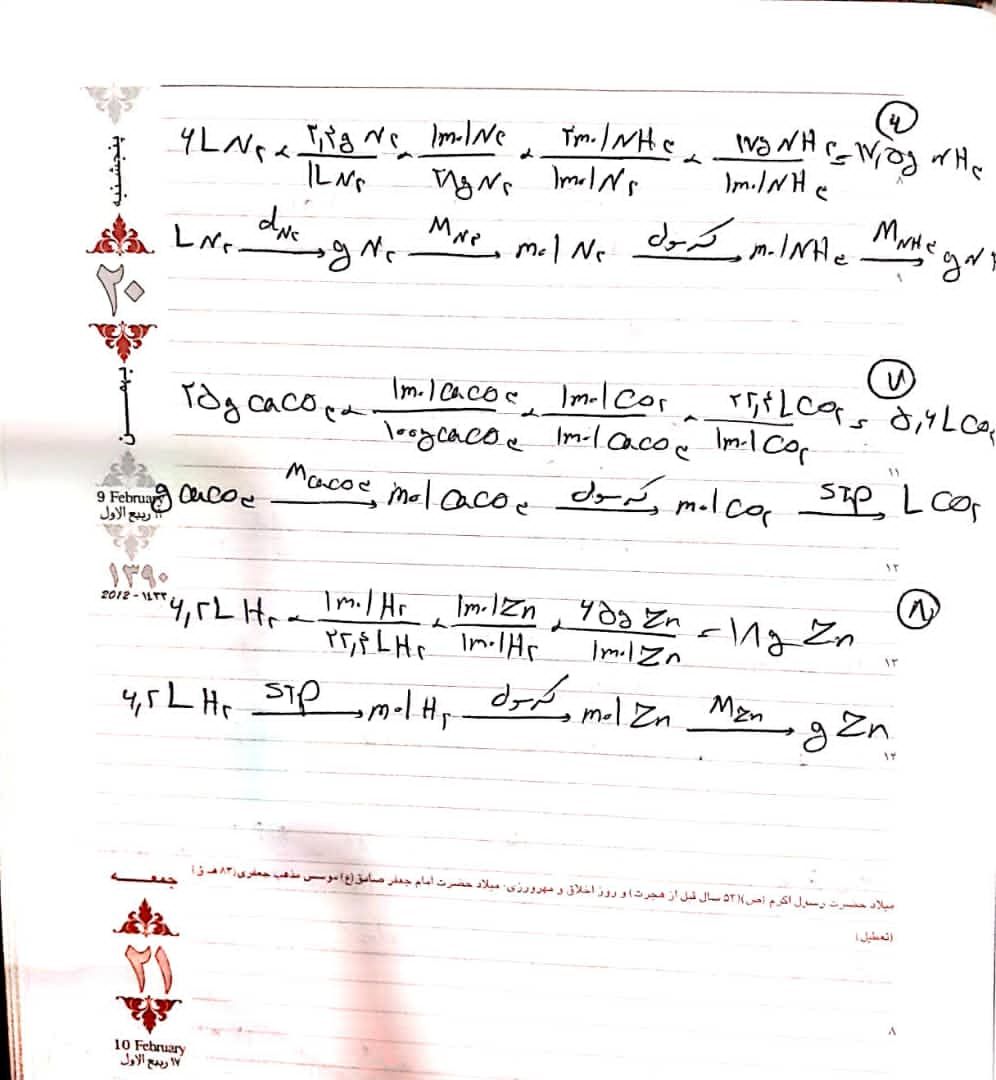 ۶
پنجشنبه
۶L N₂ × ۲٫۴g N₂ / ۱L N₂ × ۱mol N₂ / ۲۸g N₂ × ۲mol NH₃ / ۱mol N₂ × ۱۷g NH₃ / ۱mol NH₃ = ۱۷٫۵g NH₃
۸
L N₂ —d N₂→ g N₂ —M N₂→ mol N₂ —کسر مول→ mol NH₃ —M NH₃→ g N
۲۰
بهمن
۷
۲۵g CaCO₃ × ۱mol CaCO₃ / ۱۰۰g CaCO₃ × ۱mol CO₂ / ۱mol CaCO₃ × ۲۲٫۴L CO₂ / ۱mol CO₂ = ۵٫۶L CO₂
۱۱
9 February
ربیع الاول
g CaCO₃ —M CaCO₃→ mol CaCO₃ —کسر مول→ mol CO₂ —STP→ L CO₂
۱۲
۱۳۹۰
2012 - ۱٤۳۳
۸
۶٫۲L H₂ × ۱mol H₂ / ۲۲٫۴L H₂ × ۱mol Zn / ۱mol H₂ × ۶۵g Zn / ۱mol Zn = ۱۸g Zn
۱۳
۶٫۲L H₂ —STP→ mol H₂ —کسر مول→ mol Zn —M Zn→ g Zn
۱۴
جمعه
میلاد حضرت رسول اکرم (ص)(۵۳ سال قبل از هجرت) و روز اخلاق و مهرورزی- میلاد حضرت امام جعفر صادق(ع) موسس مذهب جعفری(۸۳ هـ ق)
(تعطیل)
۲۱
۸
10 February
۱۷ ربیع الاول